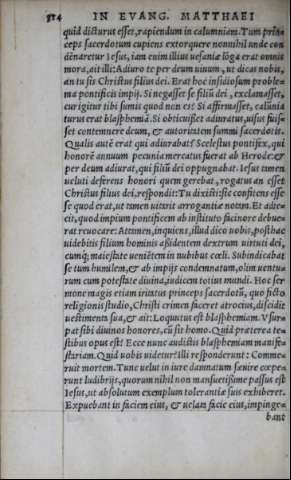 314 IN EVANG. MATTHAEI
quid dicturus esset, rapiendum in calumniam. Tum prin-
ceps sacerdotum cupiens extorquere nonnihil unde con
dēnaretur Iesus, iam enim illius uesaniæ lōga erat omnis
mora, ait illi: Adiuro te per deum uiuum, ut dicas nobis,
an tu sis Christus filius dei. Erat hoc insidiosum proble-
ma pontificis impij. Si negasset se filiū dei, exclamasset,
cur igitur tibi sumis quod non es? Si affirmasset, calūnia
turus erat blasphemiā. Si obticuisset adiuratus, uisus fuis-
set contemnere deum, & autoritatem summi sacerdotis.
Qualis autē erat qui adiurabat? Scelestus pontifex, qui
honorē annuum pecunia mercatus fuerat ab Herode: &
per deum adiurat, qui filiū dei oppugnabat. Iesus tamen
ueluti deferens honori quem gerebat, rogatus an esset
Christus filius dei, respondit: Tu dixisti: sic confitens esse
se quod erat, ut tamen uitarit arrogantiæ notam. Et adie-
cit, quod impium pontificem ab instituto facinore debue-
rat reuocare: Attamen, inquiens, illud dico uobis, posthac
uidebitis filium hominis assidentem dextram uirtuti dei,
cumq; maiestate ueniētem in nubibus cœli. Subindicabat
se tum humilem, & ab impijs condemnatum, olim uentu-
rum cum potestate diuina, iudicem totius mundi. Hoc ser
mone magis etiam irritatus princeps sacerdotū, quo ficto
religionis studio, Christi crimen faceret atrocius, discidit
uestimenta sua, & ait: Loquutus est blasphemiam. Vsur-
pat sibi diuinos honores, cū sit homo. Quid præterea te-
stibus opus est? Ecce nunc audistis blasphemiam manife-
stariam. Quid uobis uidetur? Illi responderunt: Comme-
ruit mortem. Tunc uelut in iure damnatum sæuire cœpe-
runt ludibrijs, quorum nihil non mansuetissime passus est
Iesus, ut absolutum exemplum tolerantiæ suis exhiberet.
Expuebant in faciem eius, & uelata facie eius, impinge-
bant